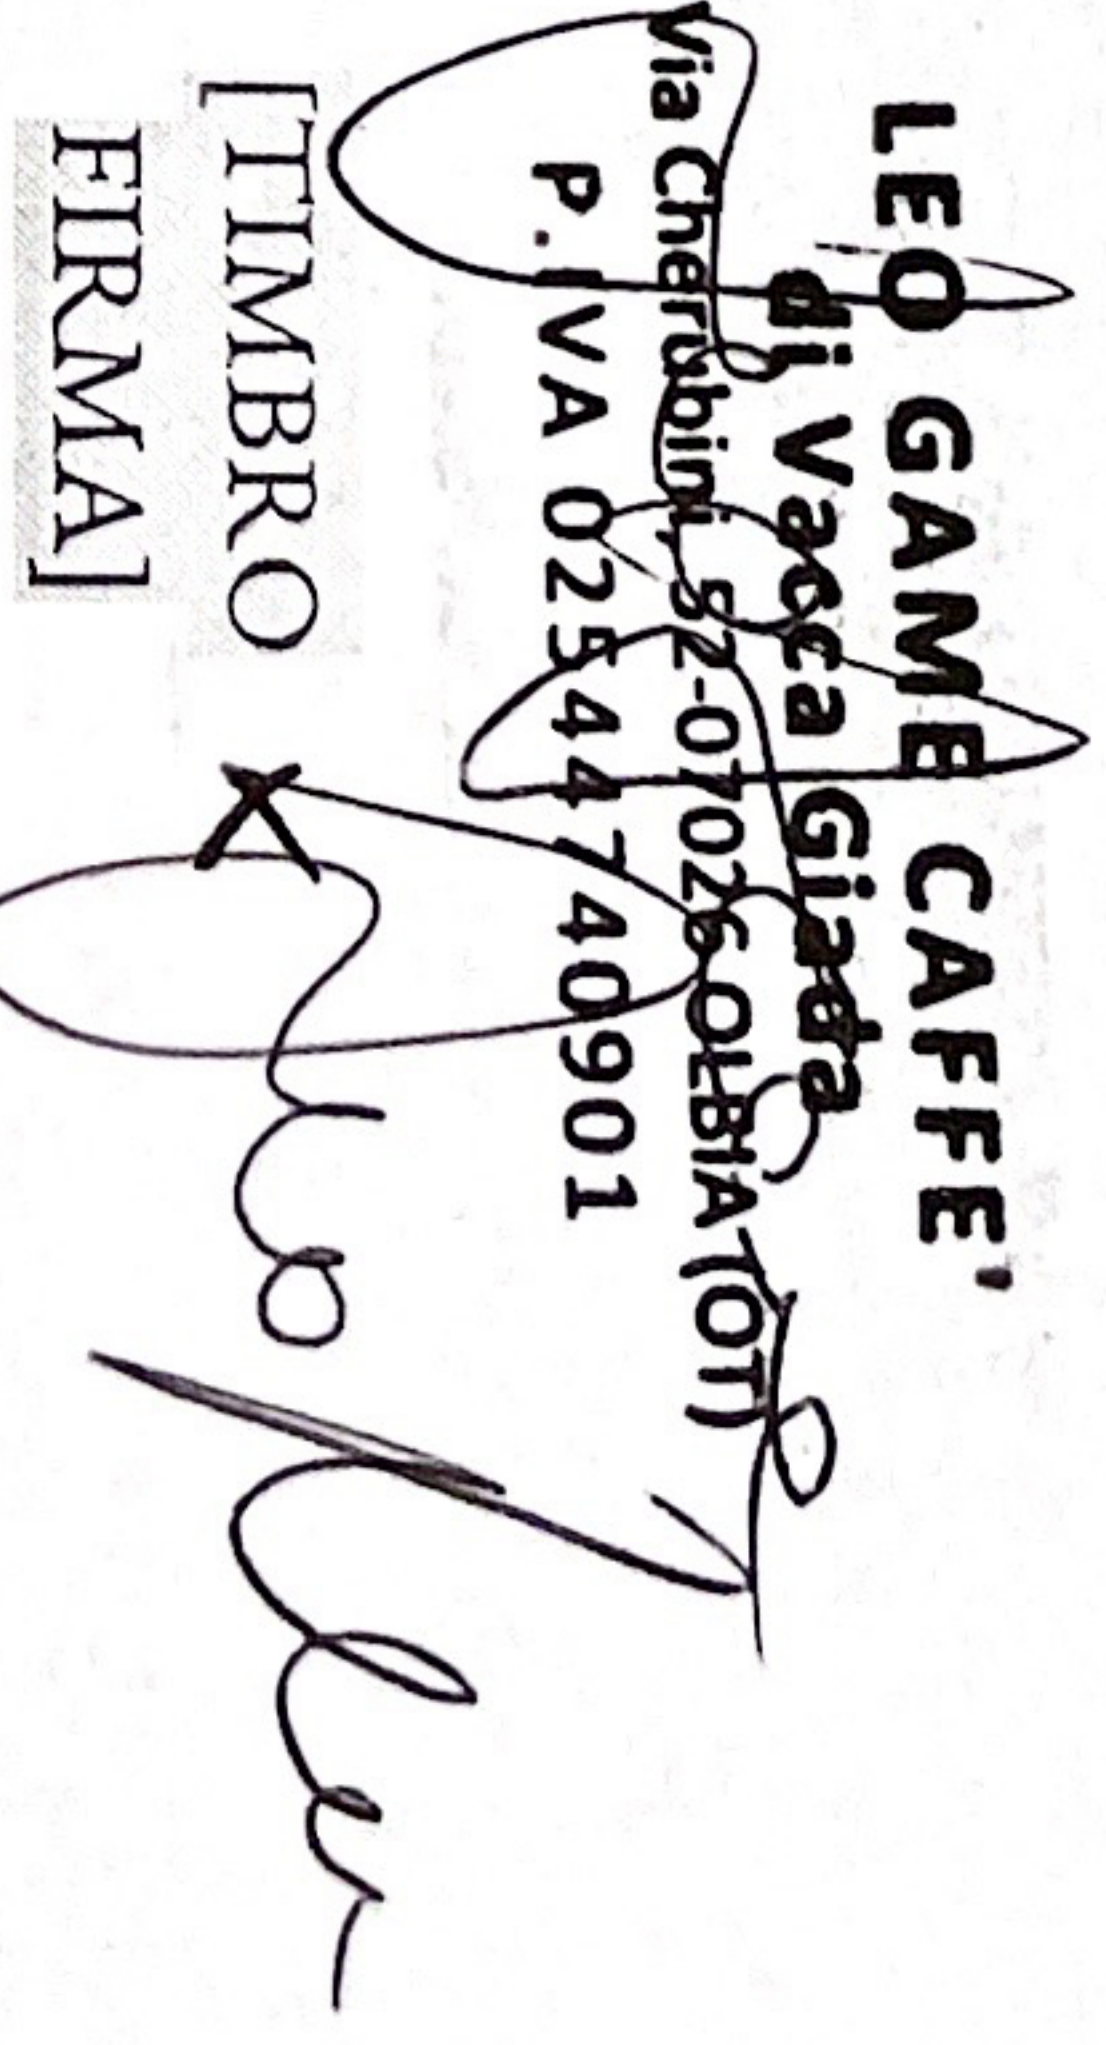 LEO GAME CAFFE'
di Vacca Giada
Via Cherubini, 52-07026 OLBIA (OT)
P.IVA 02544740901
[TIMBRO
FIRMA]
X